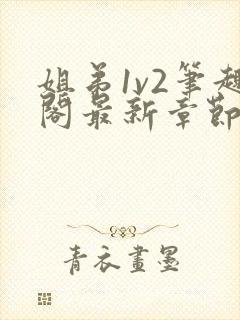 姐弟1v2筆趣
閣最新章節
青衣畫墨